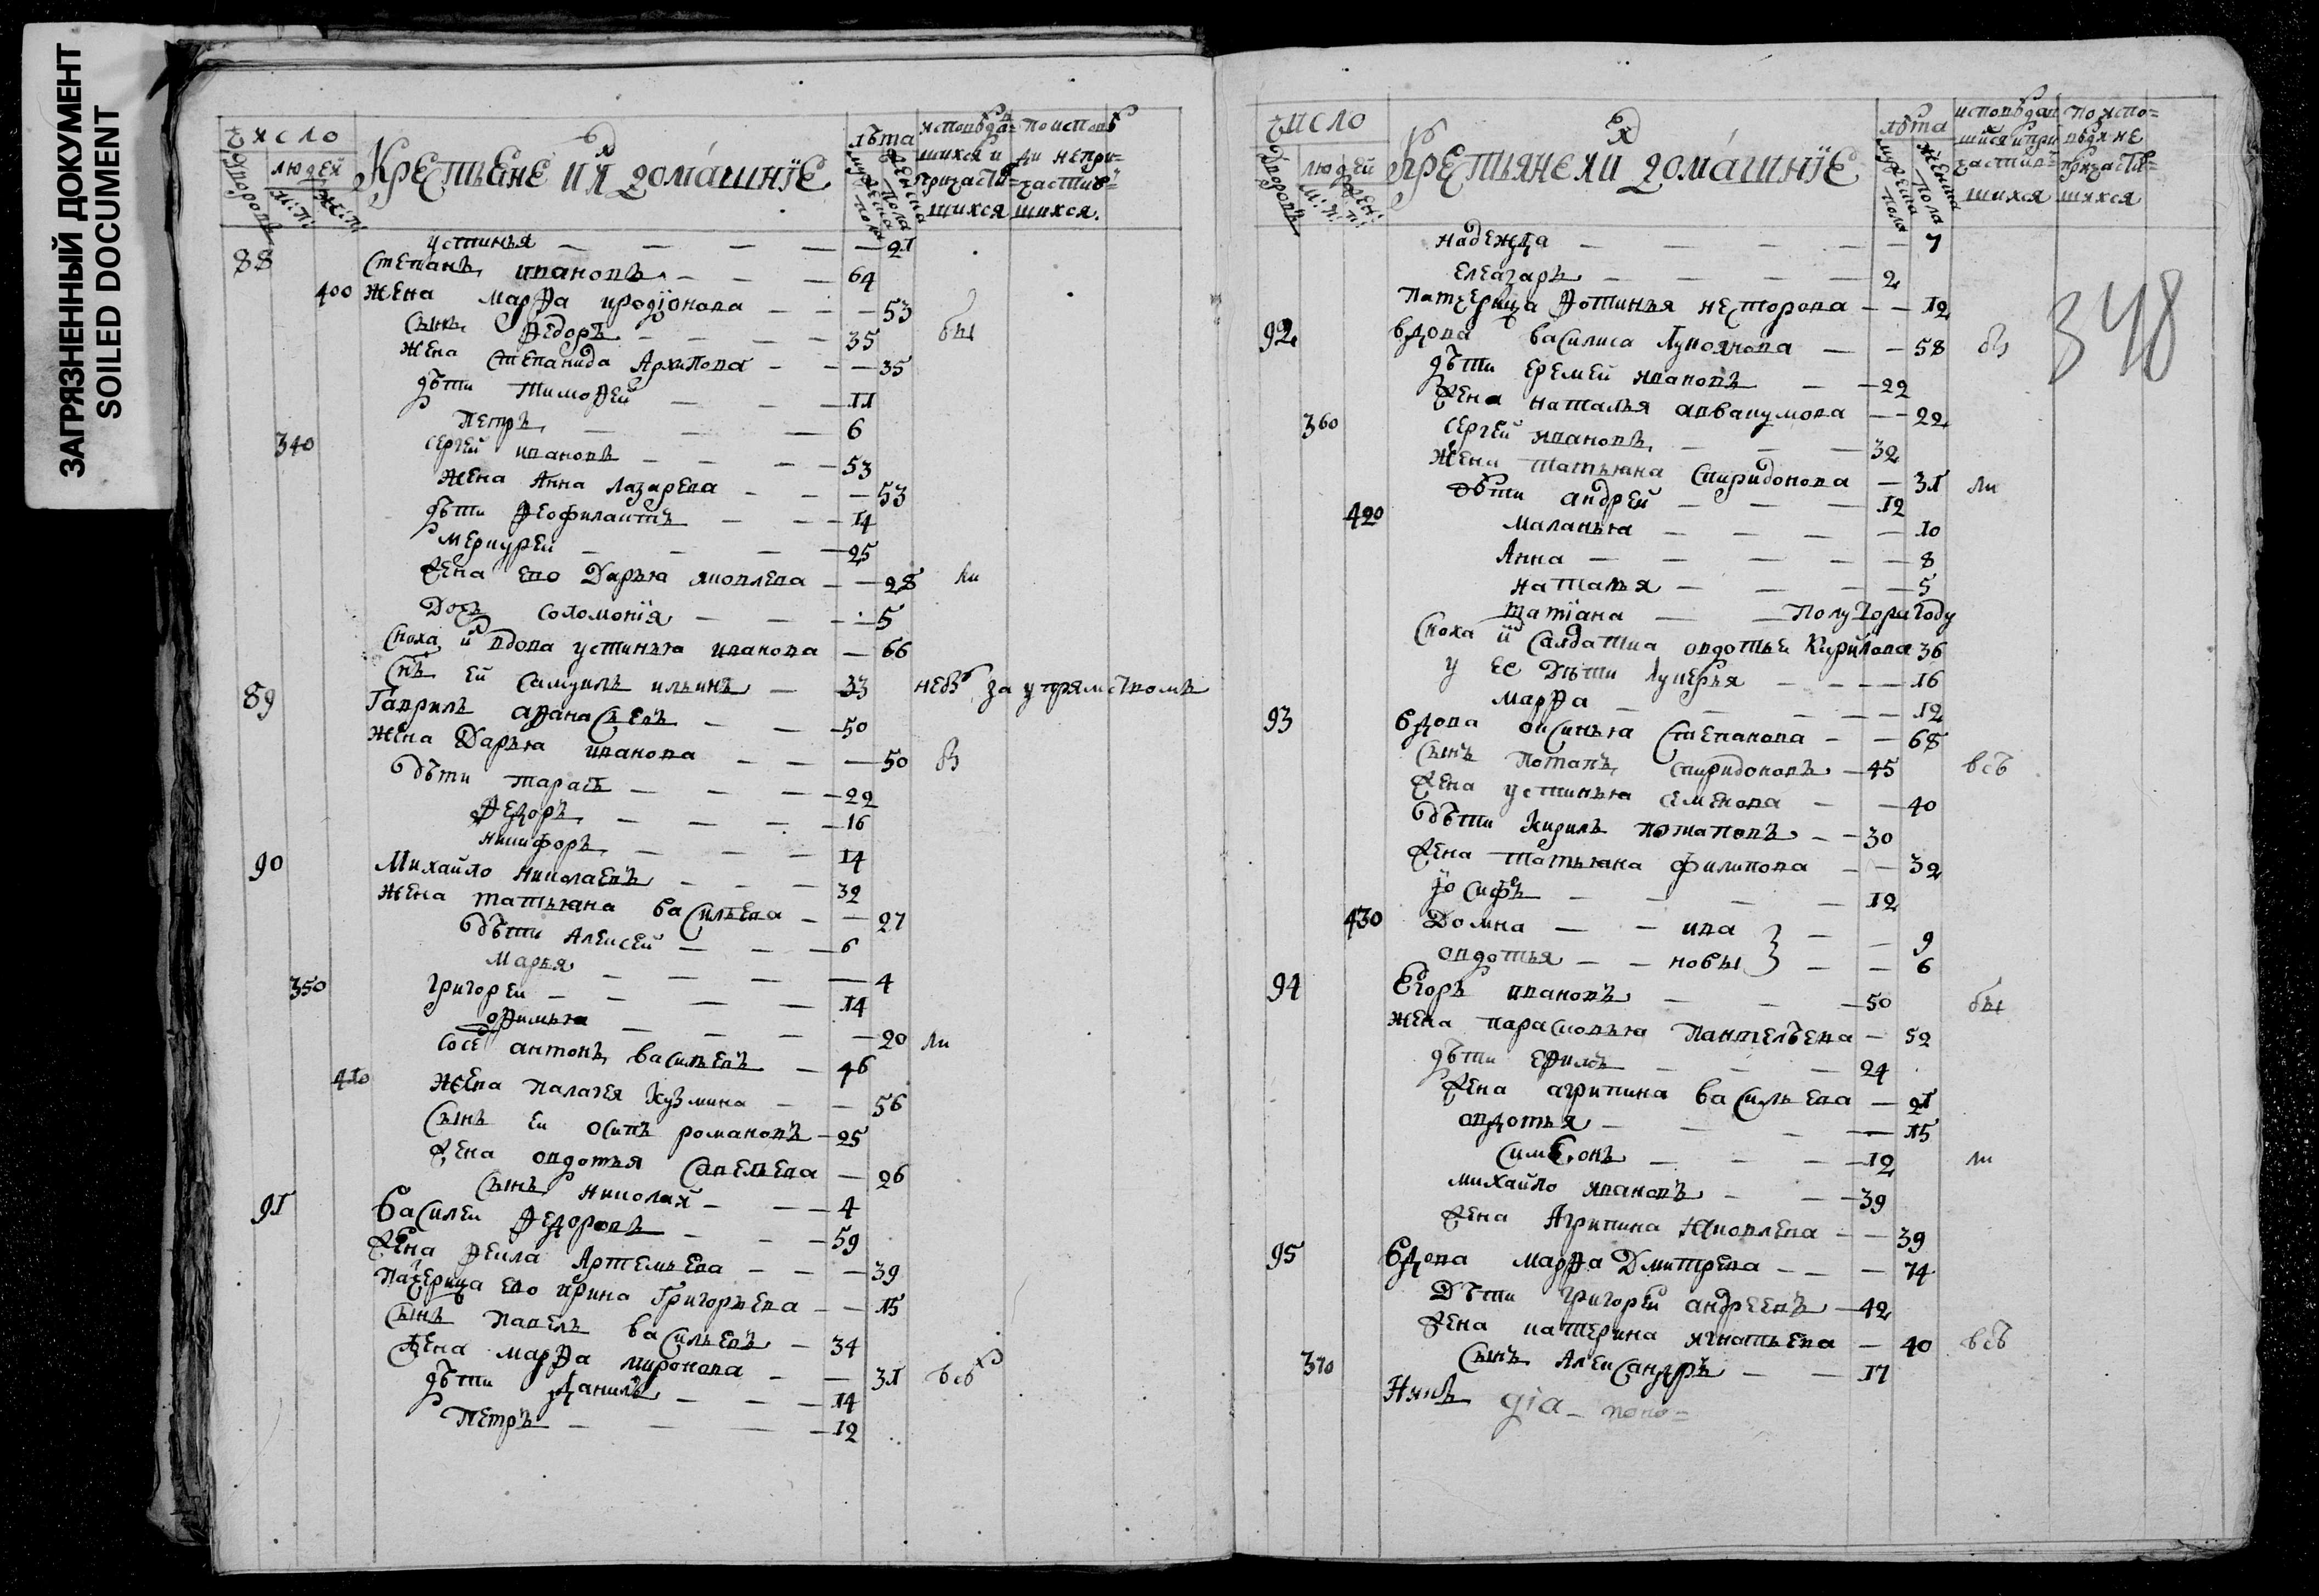 ЗАГРЯЗНЕННЫЙ ДОКУМЕНТ
SOILED DOCUMENT
число
людей
Крестьяне и их домашнїе
лѣта
устинья — — — — 21
88 Степанъ ивановъ — — 64
400 жена марѳа иродїонова — — 53
сынъ ѳедоръ — — — 35 бы
жена степанида Архипова — — 35
дѣти тимоѳей — — 11
Петръ — — 6
340 сергей ивановъ — — 53
жена Анна лазарева — — 53
дѣти ѳеофилактъ — — 14
меркурей — — — 25
жена ево Дарья яковлева — — 28 ли
Дочь соломонїя — — 5
сноха вдова устинья иванова — 66
снъ ей самуилъ ильинъ — 33 небѣ за упрямствомъ
89 Гаврилъ аѳанасьевъ — — 50
жена Дарья иванова — — — 50 въ
дѣти тарасъ — — — 22
ѳедоръ — — — 16
никифоръ — — — 14
90 Михайло николаевъ — — — 32
жена татьяна васильева — — 27
дѣти Алексей — — — 6
марья — — — — 4
350 григорей — — — — 14
офимья — — — 20 ли
антонъ васильевъ — 46
410 жена палагея кузмина — — 56
сынъ ей осипъ романовъ — 25
жена овдотья савельева — 26
сынъ николай — — — 4
91 василей ѳедоровъ — — — 59
жена ѳекла Артемьева — — — 39
падчерица ево ирина Григорьева — — 15
сынъ павелъ васильевъ — 34
жена марѳа миронова — — 31 всѣ
дѣти Данилъ — — — 14
Петръ — — — 12
число
людей
Крестьяне и их домашнїе
лѣта
348
надежда — — — — 7
елеазаръ — — — 2
патчерица ѳотинья несторова — — 12
92 вдова василиса лукоянова — — 58 въ
дѣти еремей ивановъ — — 22
жена наталья аввакумова — — 22
360 сергей ивановъ — — — 32
жена татьяна спиридонова — 31 ли
дѣти андрей — — — 12
420 маланья — — — — 10
Анна — — — — — 8
наталья — — — — 5
татїана — — полтора году
сноха салдатка овдотья кирилова 36
у ее дѣти лукерья — — — — 16
марѳа — — — — 12
93 вдова оксинья степанова — — 68
сынъ потапъ спиридоновъ — 45 всѣ
жена устинья семенова — — 40
дѣти кирилъ потаповъ — — 30
жена татьяна филипова — — 32
їосифъ — — — — 12
430 Домна — — ива — — 9
овдотья — — новы — — 6
94 Егоръ ивановъ — — — 50 бы
жена парасковья пантелѣева — 52
дѣти ефимъ — — — 24
жена агрипина васильева — 21
овдотья — — — — 15
симеонъ — — — 12 ли
михайло ивановъ — — — 39
жена Агрипина яковлева — — 39
95 вдова марѳа Дмитрева — — — 74
Дѣти григорей андреевъ — 42
жена катерина игнатьева — 40 всѣ
370 сынъ Александръ — — 17